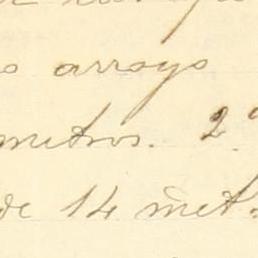 o arroyo
metros. 2ª
de 14 met